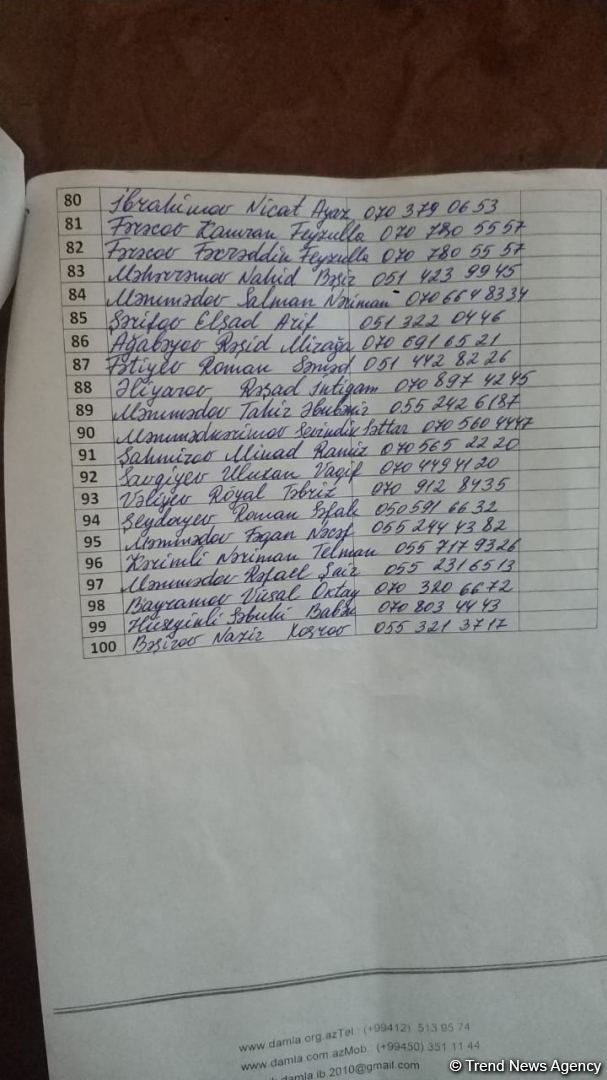 80 İbrahimov Nicat Ayaz 070 379 06 53
81 Fərəcov Kamran Feyzulla 070 780 55 57
82 Fərəcov Fəxrəddin Feyzulla 070 780 55 57
83 Məhərrəmov Nahid Bəşir 051 423 99 45
84 Məmmədov Salman Nəriman 070 664 83 34
85 Şərifov Elşad Arif 051 322 04 46
86 Ağabəyov Rəşid Mirağa 070 691 65 21
87 Fətiyev Roman Səməd 051 442 82 26
88 Əliyarov Rəşad İntiqam 070 897 42 45
89 Məmmədov Tahir Əbubəkir 055 242 61 87
90 Məmmədkərimov Sevindik Səttar 070 560 44 47
91 Şahmirov Minad Ramiz 070 565 22 20
92 Vaqif 070 449 41 20
93 Vəliyev Röyal Təbriz 070 912 84 35
94 Seydayev Roman Səfalı 050 591 66 32
95 Məmmədov Fəqan Nəcəf 055 244 43 82
96 Kərimli Nəriman Telman 055 717 93 26
97 Məmmədov Rəfael Şair 055 231 65 13
98 Bayramov Vüsal Oktay 070 320 66 72
99 Hüseyinli Səbuhi Baba 070 803 44 43
100 Bəşirov Nazir Xosrov 055 321 37 17
www.damla.org.azTel : (+99412) 513 95 74
www.damla.com.azMob : (+99450) 351 11 44
damla.ib.2010@gmail.com
© Trend News Agency